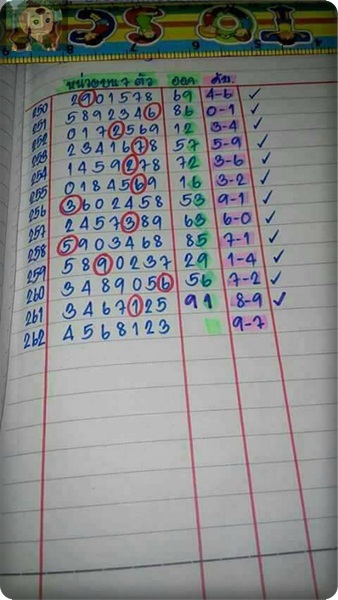 หน่วยบน 7 ตัว ออก คับ.
250 2901578 69 4-6 ✓
251 5892346 86 0-1 ✓
252 0172569 12 3-4 ✓
253 2341678 57 5-9 ✓
254 1459278 72 3-6 ✓
255 0184569 16 3-2 ✓
256 3602458 53 9-1 ✓
257 2457389 63 6-0 ✓
258 5903468 85 7-1 ✓
259 5890237 29 1-4 ✓
260 3489056 56 7-2 ✓
261 3467125 91 8-9 ✓
262 4568123 9-7